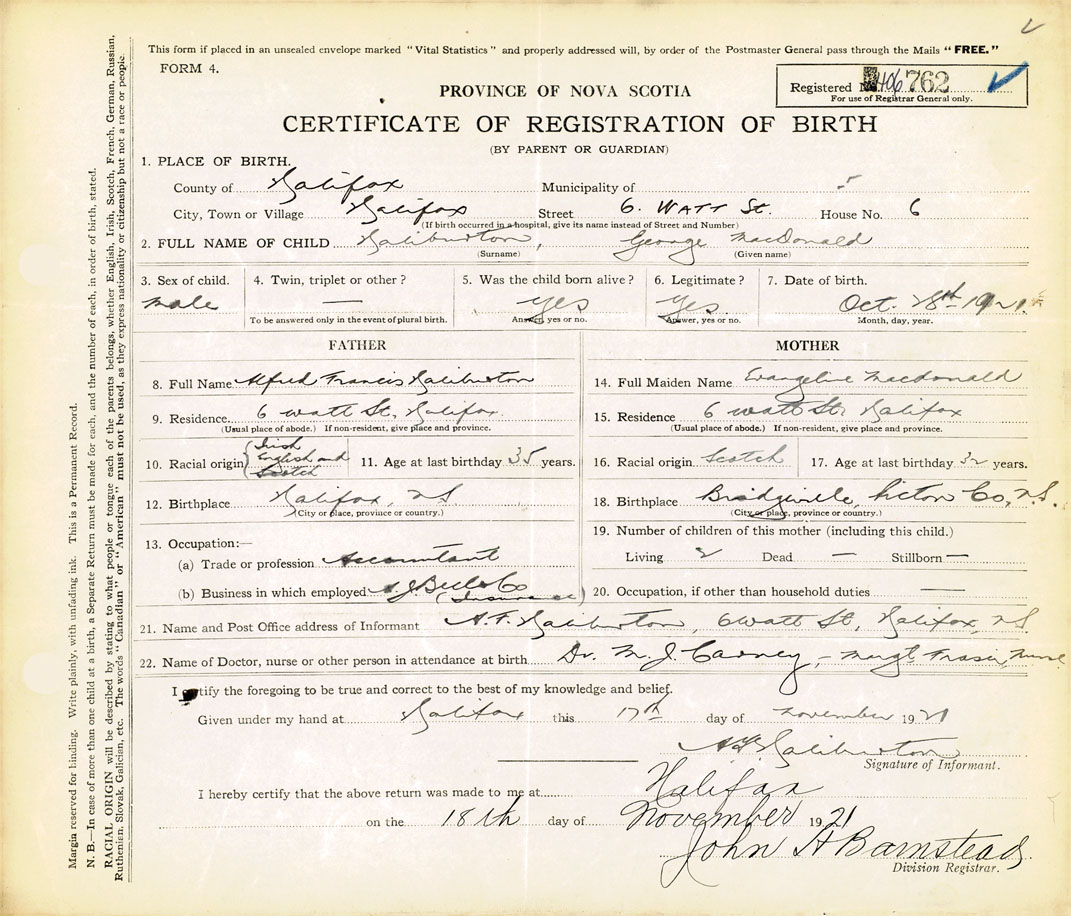 This form if placed in an unsealed envelope marked "Vital Statistics" and properly addressed will, by order of the Postmaster General pass through the Mails "FREE."
FORM 4.
Registered No. 406762
For use of Registrar General only.
PROVINCE OF NOVA SCOTIA
CERTIFICATE OF REGISTRATION OF BIRTH
(BY PARENT OR GUARDIAN)
1. PLACE OF BIRTH.
County of Halifax Municipality of
City, Town or Village Halifax Street 6. WATT St. House No. 6
(If birth occurred in a hospital, give its name instead of Street and Number)
2. FULL NAME OF CHILD Haliburton, George MacDonald
(Surname) (Given name)
3. Sex of child. 4. Twin, triplet or other? 5. Was the child born alive? 6. Legitimate? 7. Date of birth.
male — Yes Yes Oct. 28th 1921.
To be answered only in the event of plural birth. Answer, yes or no. Answer, yes or no. Month, day, year.
FATHER
8. Full Name Alfred Francis Haliburton
9. Residence 6 Watt St, Halifax.
(Usual place of abode.) If non-resident, give place and province.
10. Racial origin Irish English and Scotch 11. Age at last birthday 35 years.
12. Birthplace Halifax, NS
(City or place, province or country.)
13. Occupation:—
(a) Trade or profession Accountant
(b) Business in which employed Co (Insurance)
MOTHER
14. Full Maiden Name Evangeline Macdonald
15. Residence 6 Watt St, Halifax
(Usual place of abode.) If non-resident, give place and province.
16. Racial origin Scotch 17. Age at last birthday 32 years.
18. Birthplace Bridgeville, Pictou Co, N.S.
(City or place, province or country.)
19. Number of children of this mother (including this child.)
Living 2 Dead — Stillborn —
20. Occupation, if other than household duties —
21. Name and Post Office address of Informant A.F. Haliburton, 6 Watt St, Halifax, NS
22. Name of Doctor, nurse or other person in attendance at birth. Dr. M. J. Carney, - Fraser, Nurse
I certify the foregoing to be true and correct to the best of my knowledge and belief.
Given under my hand at Halifax this 17th day of November 1921
A.F. Haliburton
Signature of Informant.
I hereby certify that the above return was made to me at Halifax
on the 18th day of November 1921
John H Barnstead
Division Registrar.
Margin reserved for binding. Write plainly, with unfading ink. This is a Permanent Record.
N. B.—In case of more than one child at a birth, a Separate Return must be made for each, and the number of each, in order of birth, stated.
RACIAL ORIGIN will be described by stating to what people or tongue each of the parents belongs, whether English, Irish, Scotch, French, German, Russian,
Ruthenian, Slovak, Galician, etc. The words "Canadian" or "American" must not be used, as they express nationality or citizenship but not a race or people.